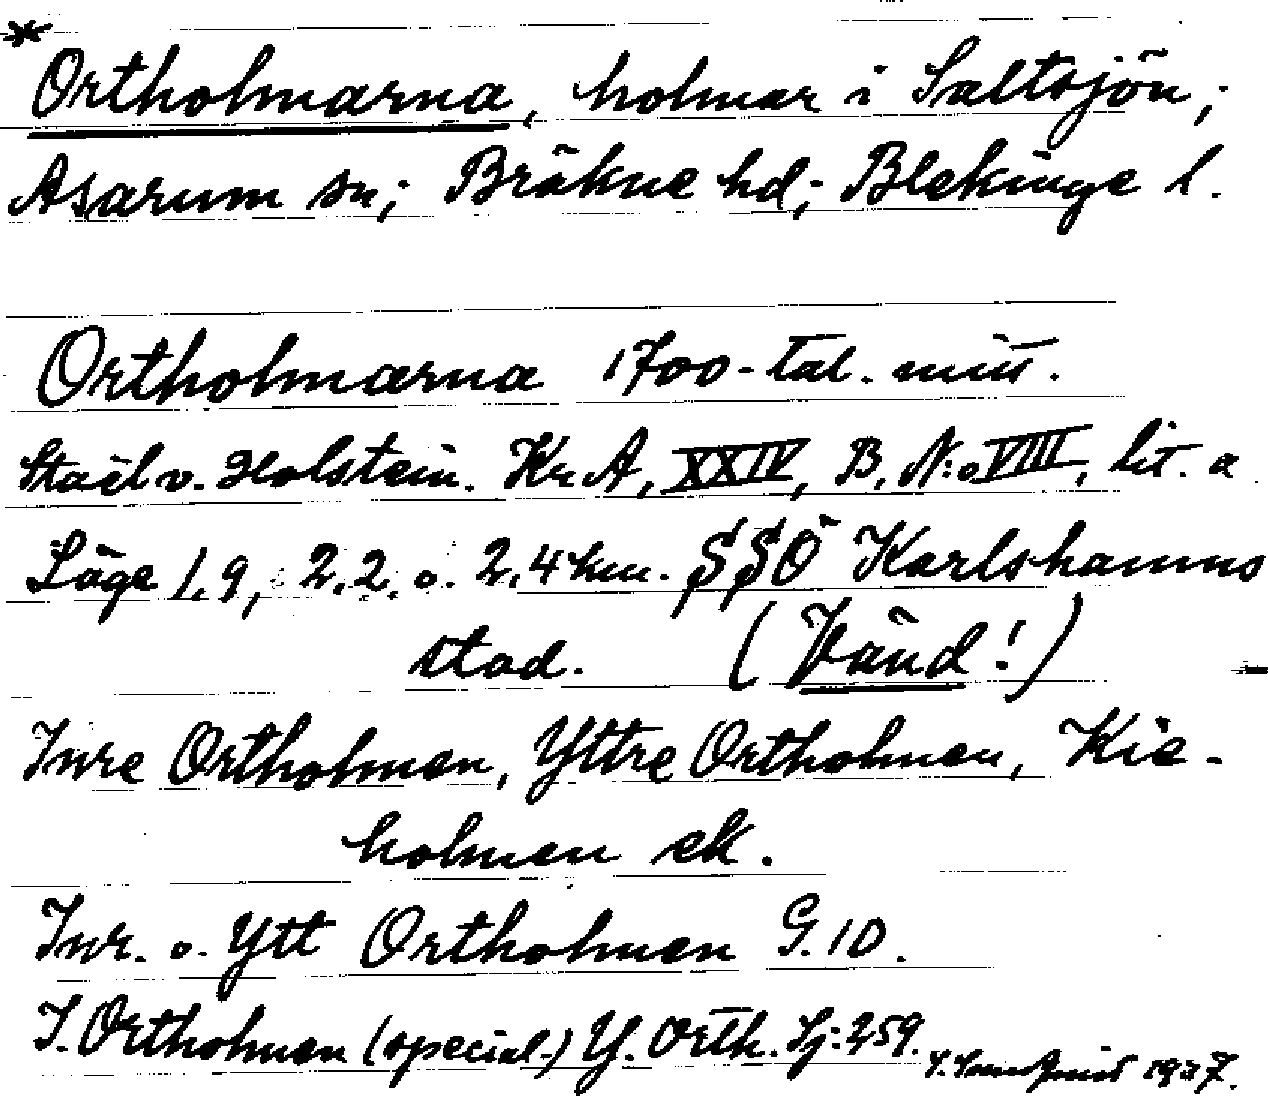 Ortholmarna, holmar i Saltsjön;
Asarum sn; Bräkne hd; Blekinge l.
Ortholmarna 1700-tal. mitt.
Staël v. Holstein. Kr. A, XXIV, B. N:o VIII, lit. a
Läge 1.9, 2.2. o. 2.4 km. SSÖ Karlshamns
stad. (Vänd!)
Inre Ortholmen, Yttre Ortholmen, Kie-
holmen ek.
Inr. o. Ytt Ortholmen G. 10.
I. Ortholmen (special-) Y. Orth. Sj: 259.
1937.